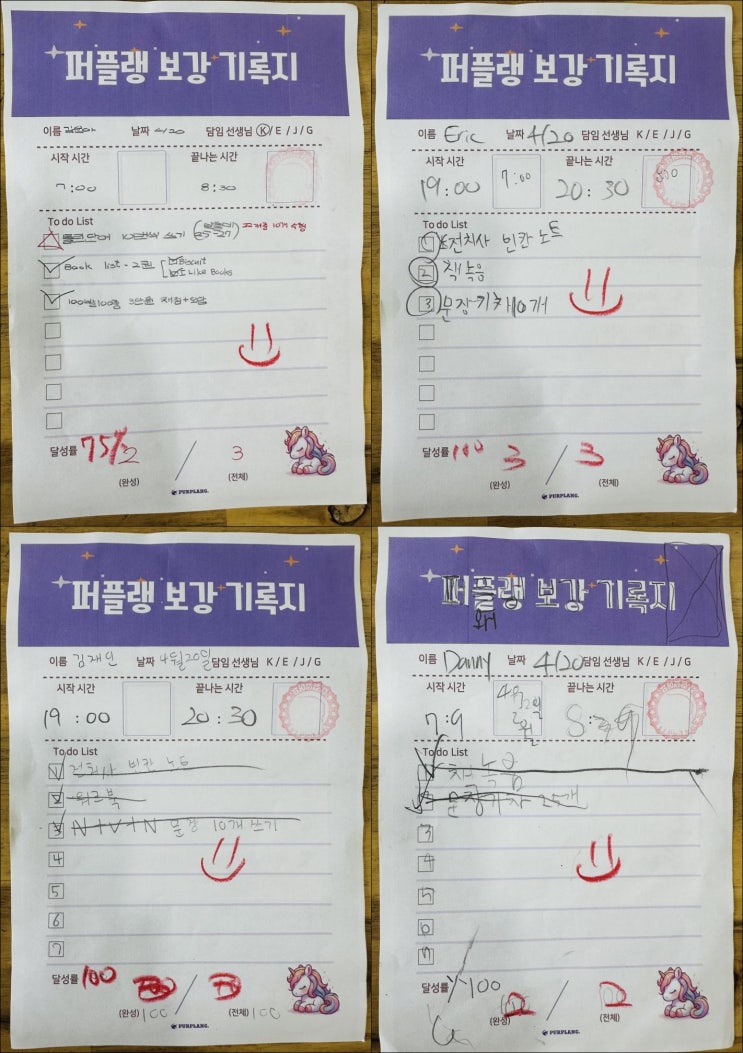 퍼플랭 보강 기록지
이름 날짜 4/20 담임 선생님 K / E / J / G
시작 시간 끝나는 시간
7:00 8:30
To do List
10번씩 쓰기 (25-27)
Book list - 2권 Biscuit
I Like Books
100
달성률 75% / 3
(완성) (전체)
PURPLANG.
퍼플랭 보강 기록지
이름 Eric 날짜 4/20 담임 선생님 K / E / J / G
시작 시간 끝나는 시간
19:00 7:00 20:30
To do List
1 전치사 빈칸 노트
2 책 녹음
3 문장 기차 10개
달성률 100 3 / 3
(완성) (전체)
PURPLANG.
퍼플랭 보강 기록지
이름 김재인 날짜 4월20일 담임 선생님 K / E / J / G
시작 시간 끝나는 시간
19:00 20:30
To do List
1 전치사 빈칸 노트
2 워크북
3 N+V+N 문장 10개 쓰기
4
5
6
7
달성률 100 /
(완성) 100 (전체) 100
PURPLANG.
퍼플랭 보강 기록지
이름 Danny 날짜 4/20 담임 선생님 K / E / J / G
시작 시간 끝나는 시간
To do List
책 녹음
문장기차 25개
3
4
5
6
7
달성률 100 2 / 2
(완성) (전체)
PURPLANG.